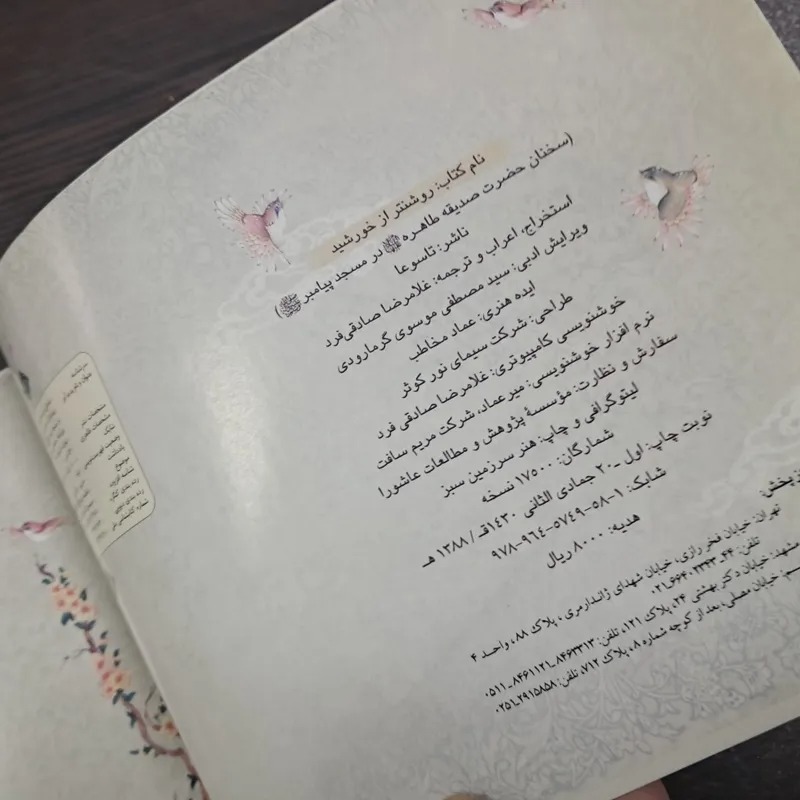 نام کتاب: روشنتر از خورشید
(سخنان حضرت صدیقه طاهره در مسجد پیامبر)
ناشر: تاسوعا
استخراج، اعراب و ترجمه: غلامرضا صادقی‌فرد
ویرایش ادبی: سید مصطفی موسوی گرمارودی
ایده هنری: عماد مخاطب
طراحی: شرکت سیمای نور کوثر
خوشنویسی کامپیوتری: غلامرضا صادقی فرد
نرم افزار خوشنویسی: میرعماد، شرکت مریم سافت
سفارش و نظارت: مؤسسهٔ پژوهش و مطالعات عاشورا
لیتوگرافی و چاپ: هنر سرزمین سبز
شمارگان: ۱۷۵۰۰ نسخه
نوبت چاپ: اول ـ ۲۰ جمادی الثانی ۱۴۳۰قـ / ۱۳۸۸ هـ
شابک: ۱-۵۸-۵۷۴۹-۹۶۴-۹۷۸
هدیه: ۸۰۰۰ ریال
پخش:
تهران: خیابان فخر رازی، خیابان شهدای ژاندارمری، پلاک ۸۸، واحد ۴
تلفن: ۴۴ـ۶۶۴۰۲۳۴۳ـ۰۲۱
مشهد: خیابان دکتر بهشتی ۲۴، پلاک ۱۲۱، تلفن: ۸۴۶۳۳۱۳ـ۸۴۶۱۱۲۱ـ۰۵۱۱
خیابان مصلی، بعد از کوچه شماره ۸، پلاک ۷۱۲، تلفن: ۲۹۱۵۸۵۸ـ۰۲۵۱